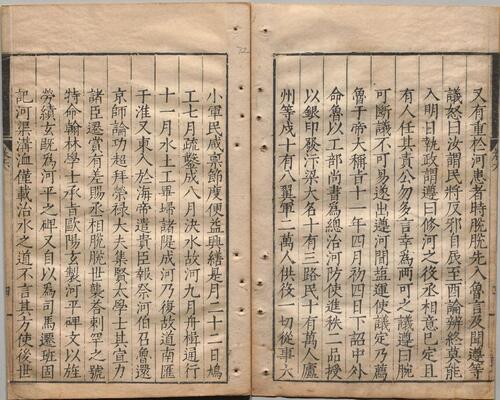 又有重於河患者時脫脫先入魯言及聞遵等
議怒曰汝謂民將反邪自辰至酉論辨終莫能
入明日執政謂遵曰修河之役丞相意已定且
有人任其責公勿多言幸為兩可之議遵曰腕
可斷議不可易遂出遵河間鹽運使議定乃薦
魯于帝大稱旨十一年四月初四日下詔中外
命魯以工部尚書為總治河防使進秩二品授
以銀印發汴梁大名十有三路民十有五萬人廬
州等戍十有八翼軍二萬人供役一切從事六
小軍民咸稟節度便益興繕是月二十二日鳩
工七月疏鑿成八月決水故河九月舟楫通行
十一月水土工畢埽諸隄成河乃復故道南匯
于淮又東入於海帝遣貴臣報祭河伯召魯還
京師論功超拜榮祿大夫集賢大學士其宣力
諸臣遷賞有差賜丞相脫脫世襲荅剌罕之號
特命翰林學士承旨歐陽玄製河平碑文以旌
勞績玄既為河平之碑又自以為司馬遷班固
記河渠溝洫僅載治水之道不言其方使後世